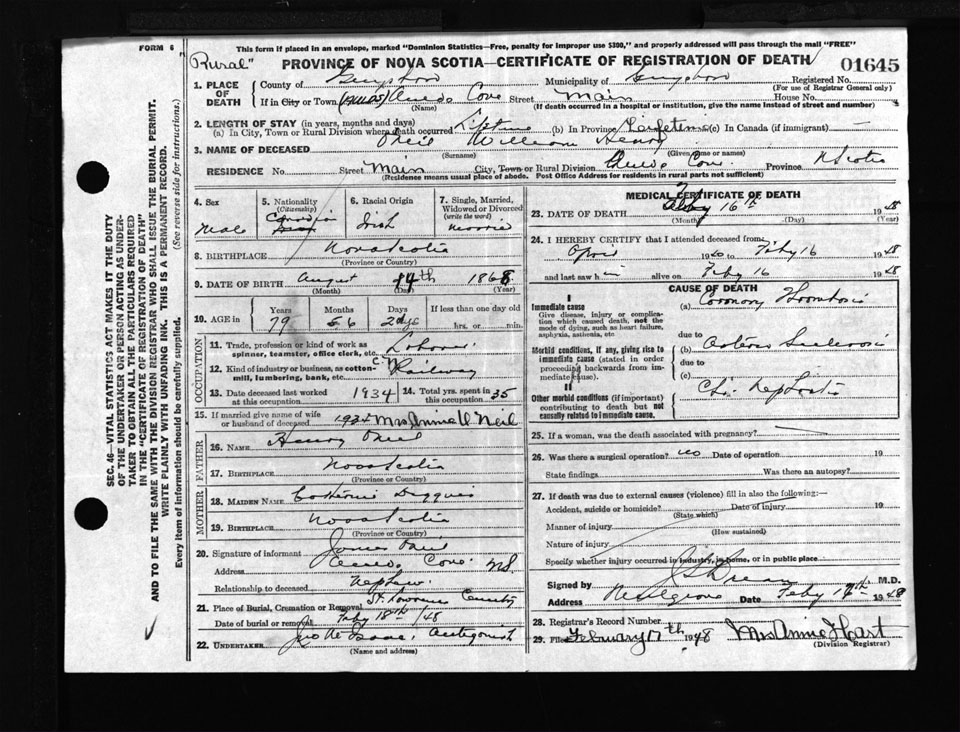 FORM 6
This form if placed in an envelope, marked "Dominion Statistics—Free, penalty for improper use $300," and properly addressed will pass through the mail "FREE"
Rural"
PROVINCE OF NOVA SCOTIA—CERTIFICATE OF REGISTRATION OF DEATH
01645
1. PLACE OF DEATH
County of Guysboro
Municipality of Guysboro
Registered No.
(For use of Registrar General only)
If in City or Town Cove Street Main House No.
(Name) (If death occurred in a hospital or institution, give the name instead of street and number)
2. LENGTH OF STAY (in years, months and days)
(a) In City, Town or Rural Division where death occurred Lifetime (b) In Province Lifetime (c) In Canada (if immigrant) —
3. NAME OF DECEASED O'Neil William Henry
(Surname) (Given name or names)
RESIDENCE No. Street Main City, Town or Rural Division Cove Province N Scotia
(Residence means usual place of abode. Post Office Address for residents in rural parts not sufficient)
4. Sex
Male
5. Nationality
(Citizenship)
Canadian
6. Racial Origin
Irish
7. Single, Married, Widowed or Divorced
(write the word)
Married
8. BIRTHPLACE Nova Scotia
(Province or Country)
9. DATE OF BIRTH August 14th 1868
(Month) (Day)
10. AGE in
Years Months Days If less than one day old
79 6 2 dys hrs. or min.
OCCUPATION
11. Trade, profession or kind of work as spinner, teamster, office clerk, etc. Laborer
12. Kind of industry or business, as cotton-mill, lumbering, bank, etc. Railway
13. Date deceased last worked at this occupation 1934
14. Total yrs. spent in this occupation 35
15. If married give name of wife or husband of deceased 1935 Mrs Annie O'Neil
FATHER
16. NAME Henry O'Neil
17. BIRTHPLACE Nova Scotia
MOTHER
18. MAIDEN NAME Catherine
19. BIRTHPLACE Nova Scotia
(Province or Country)
20. Signature of informant James O'Neil
Address Cove NS
Relationship to deceased Nephew
21. Place of Burial, Cremation or Removal St. Cemetery
Date of burial or removal Feby 18th /48
22. UNDERTAKER Antigonish
(Name and address)
MEDICAL CERTIFICATE OF DEATH
23. DATE OF DEATH Feby 16th 1948
(Month) (Day) (Year)
24. I HEREBY CERTIFY that I attended deceased from:
April 1940 to Feby 16 1948
and last saw him alive on Feby 16 1948
CAUSE OF DEATH
I
Immediate cause
Give disease, injury or complication which caused death, not the mode of dying, such as heart failure, asphyxia, asthenia, etc
(a) Coronary Thrombosis
due to
Morbid conditions, if any, giving rise to immediate cause (stated in order proceeding backwards from immediate cause).
(b) Arterio Sclerosis
due to
(c)
II
Other morbid conditions (if important) contributing to death but not causally related to immediate cause.
Chr. Nephritis
25. If a woman, was the death associated with pregnancy? —
26. Was there a surgical operation? no Date of operation 19
State findings Was there an autopsy?
27. If death was due to external causes (violence) fill in also the following:—
Accident, suicide or homicide? Date of injury 19
(State which)
Manner of injury
(How sustained)
Nature of injury
Specify whether injury occurred in industry, in home, or in public place
Signed by M.D.
Address Date Feby 1948
28. Registrar's Record Number
29. Filed February 17th 1948 Mrs Annie Hart
(Division Registrar)
SEC. 46—VITAL STATISTICS ACT MAKES IT THE DUTY
OF THE UNDERTAKER OR PERSON ACTING AS UNDER-
TAKER TO OBTAIN ALL THE PARTICULARS REQUIRED
IN THE "CERTIFICATE OF REGISTRATION OF DEATH"
AND TO FILE THE SAME WITH THE DIVISION REGISTRAR WHO SHALL ISSUE THE BURIAL PERMIT.
WRITE PLAINLY WITH UNFADING INK. THIS IS A PERMANENT RECORD.
Every item of information should be carefully supplied. (See reverse side for instructions.)